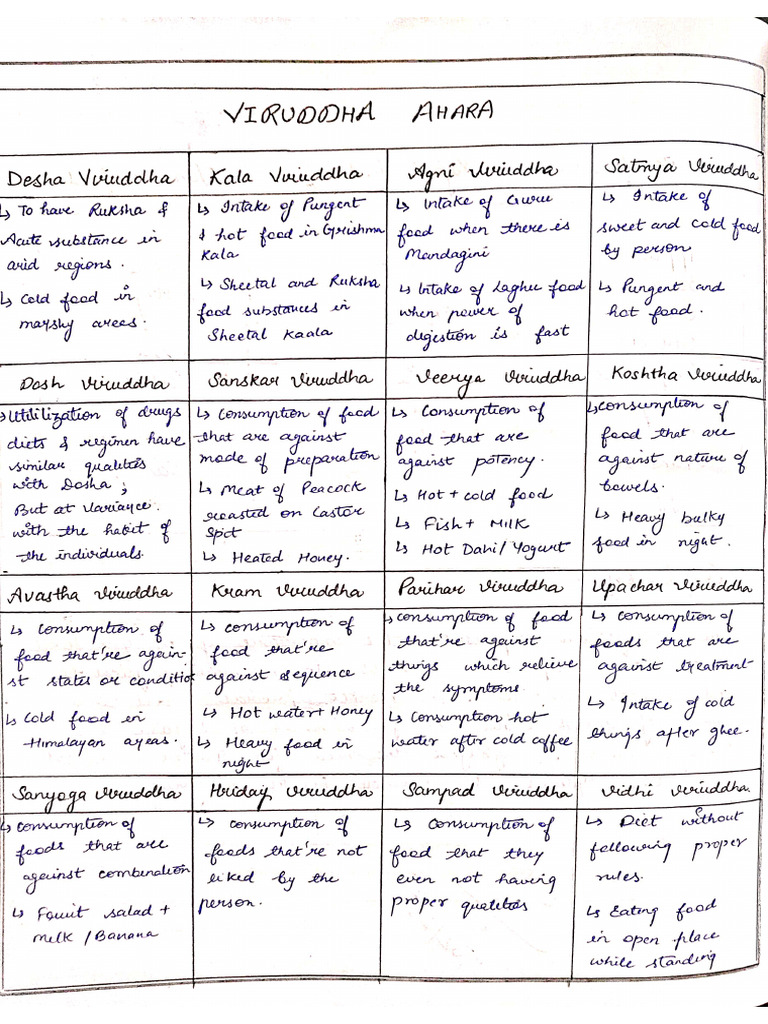 VIRUDDHA AHARA
Desha Viruddha
↳ To have Ruksha &
Acute substance in
arid regions.
↳ Cold food in
marshy arees.
Kala Viruddha
↳ Intake of Pungent
& hot food in Grishma
Kala
↳ Sheetal and Ruksha
food substances in
Sheetal Kaala
Agni Viruddha
↳ Intake of Guru
food when there is
Mandagini
↳ Intake of Laghu food
when power of
digestion is fast
Satmya Viruddha
↳ Intake of
sweet and cold food
by person
↳ Pungent and
hot food.
Dosh Viruddha
↳ Utilization of drugs
diets & regimen have
similar qualities
with Dosha;
But at variance.
with the habit of
the individuals.
Sanskar Viruddha
↳ Consumption of food
that are against
mode of preparation
↳ Meat of Peacock
roasted on Castor
Spit
↳ Heated Honey.
Veerya Viruddha
↳ Consumption of
food that are
against potency.
↳ Hot + cold food
↳ Fish + Milk
↳ Hot Dahi/Yogurt
Koshtha Viruddha
↳ consumption of
food that are
against nature of
bowels.
↳ Heavy bulky
food in night.
Avastha Viruddha
↳ Consumption of
food that're again-
st states or conditio
↳ Cold food in
Himalayan areas.
Kram Viruddha
↳ consumption of
food that're
against sequence
↳ Hot water + Honey
↳ Heavy food in
night
Parihar Viruddha
↳ consumption of food
that're against
things which relieve
the symptoms
↳ Consumption hot
water after cold coffee
Upachar Viruddha
↳ Consumption of
foods that are
against treatment
↳ Intake of cold
things after ghee.
Sanyoga Viruddha
↳ Consumption of
foods that are
against combination
↳ Fruit salad +
Milk / Banana
Hriday Viruddha
↳ consumption of
foods that're not
liked by the
person.
Sampad Viruddha
↳ Consumption of
food that they
even not having
proper qualities
Vidhi Viruddha.
↳ Diet without
following proper
rules.
↳ Eating food
in open place
while standing